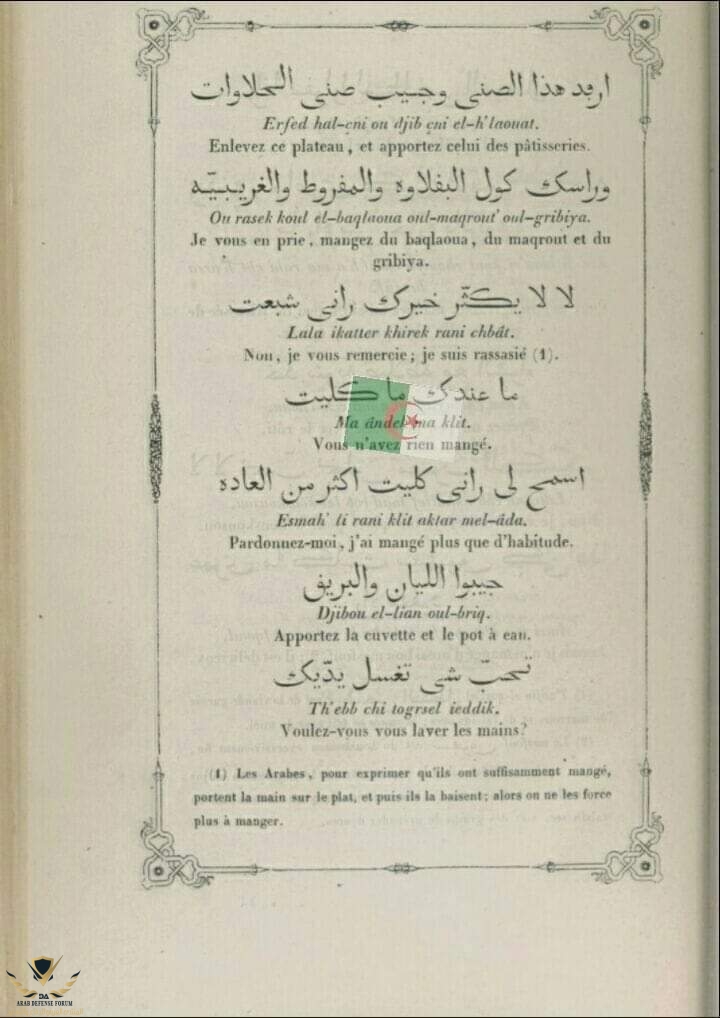 ارفد هذا الصنى وجيب صنى الحلاوات
Erfed hal-çni ou djib çni el-h'laouat.
Enlevez ce plateau, et apportez celui des pâtisseries.
وراسك كول البقلاوه والمقروط والغريبيّه
Ou rasek koul el-baqlaoua oul-maqrout' oul-gribiya.
Je vous en prie, mangez du baqlaoua, du maqrout et du
gribiya.
لا لا يكثّر خيرك رانى شبعت
Lala ikatter khirek rani chbât.
Non, je vous remercie; je suis rassasié (1).
ما عندك ما كليت
Ma ândek ma klit.
Vous n'avez rien mangé.
اسمح لى رانى كليت اكثر من العاده
Esmah' li rani klit aktar mel-âda.
Pardonnez-moi, j'ai mangé plus que d'habitude.
جيبوا الليان والبريق
Djibou el-lian oul-briq.
Apportez la cuvette et le pot à eau.
تحبّ شى تغسل يدّيك
Th'ebb chi togrsel ieddik.
Voulez-vous vous laver les mains?
(1) Les Arabes, pour exprimer qu'ils ont suffisamment mangé,
portent la main sur le plat, et puis ils la baisent; alors on ne les force
plus à manger.
DA
ARAB DEFENSE FORUM